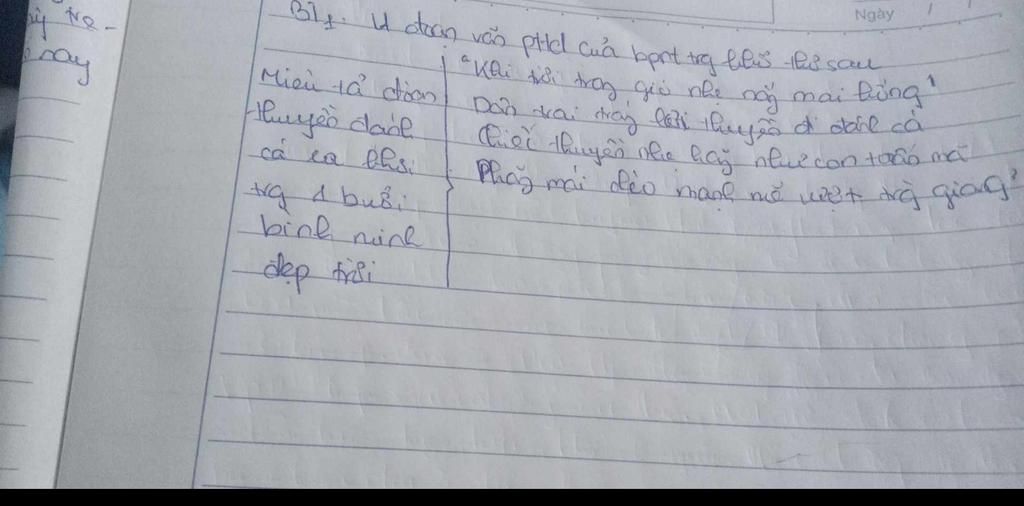 ray
Ngày / /
BT1. V đoạn văn pttd của bpnt trg khổ thơ sau
Miêu tả đoàn
thuyền đánh
cá ra khơi
trg 1 buổi
bình minh
đẹp trời
"Khi trời trong gió nhẹ nắng mai hồng"
Dân trai tráng bơi thuyền đi đánh cá
Chiếc thuyền nhẹ hăng như con tuấn mã
Phăng mái chèo mạnh mẽ vượt trg giang"